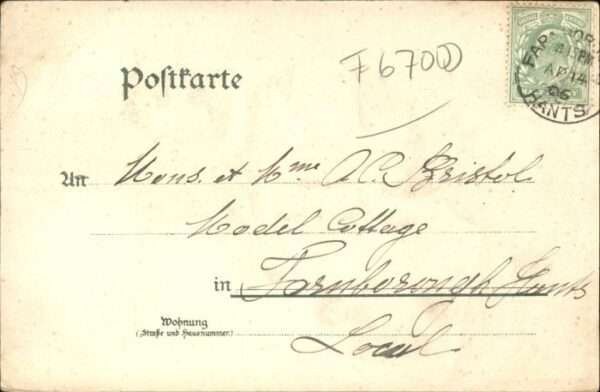 FARNBOROUGH
AP 14
06
HANTS
F 670
Postkarte
An Mons. et Mme A. C. Bristol
Model Cottage
in Farnborough Hants
Wohnung
(Straße und Hausnummer)
Local